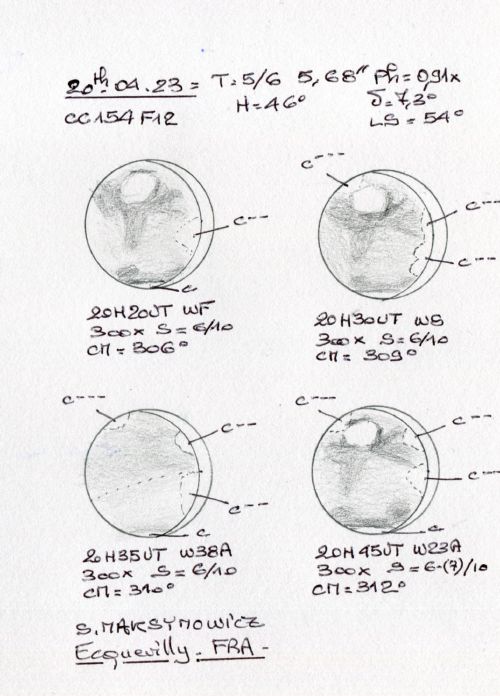 20th 04.23= T=5/6 5,68" Ph=0,91x
H=46° δ=7,3"
CC154F12 LS=54°
c---
c---
c--
c--
c
20H20UT WF
300x S=6/10
CM=306°
20H30UT W8
300x S=6/10
CM=309°
c---
c---
c--
c--
c--
c--
c
c
20H35UT W38A
300x S=6/10
CM=310°
20H45UT W23A
300x S=6-(7)/10
CM=312°
S.MAKSYMOWICZ
Ecquevilly. FRA-